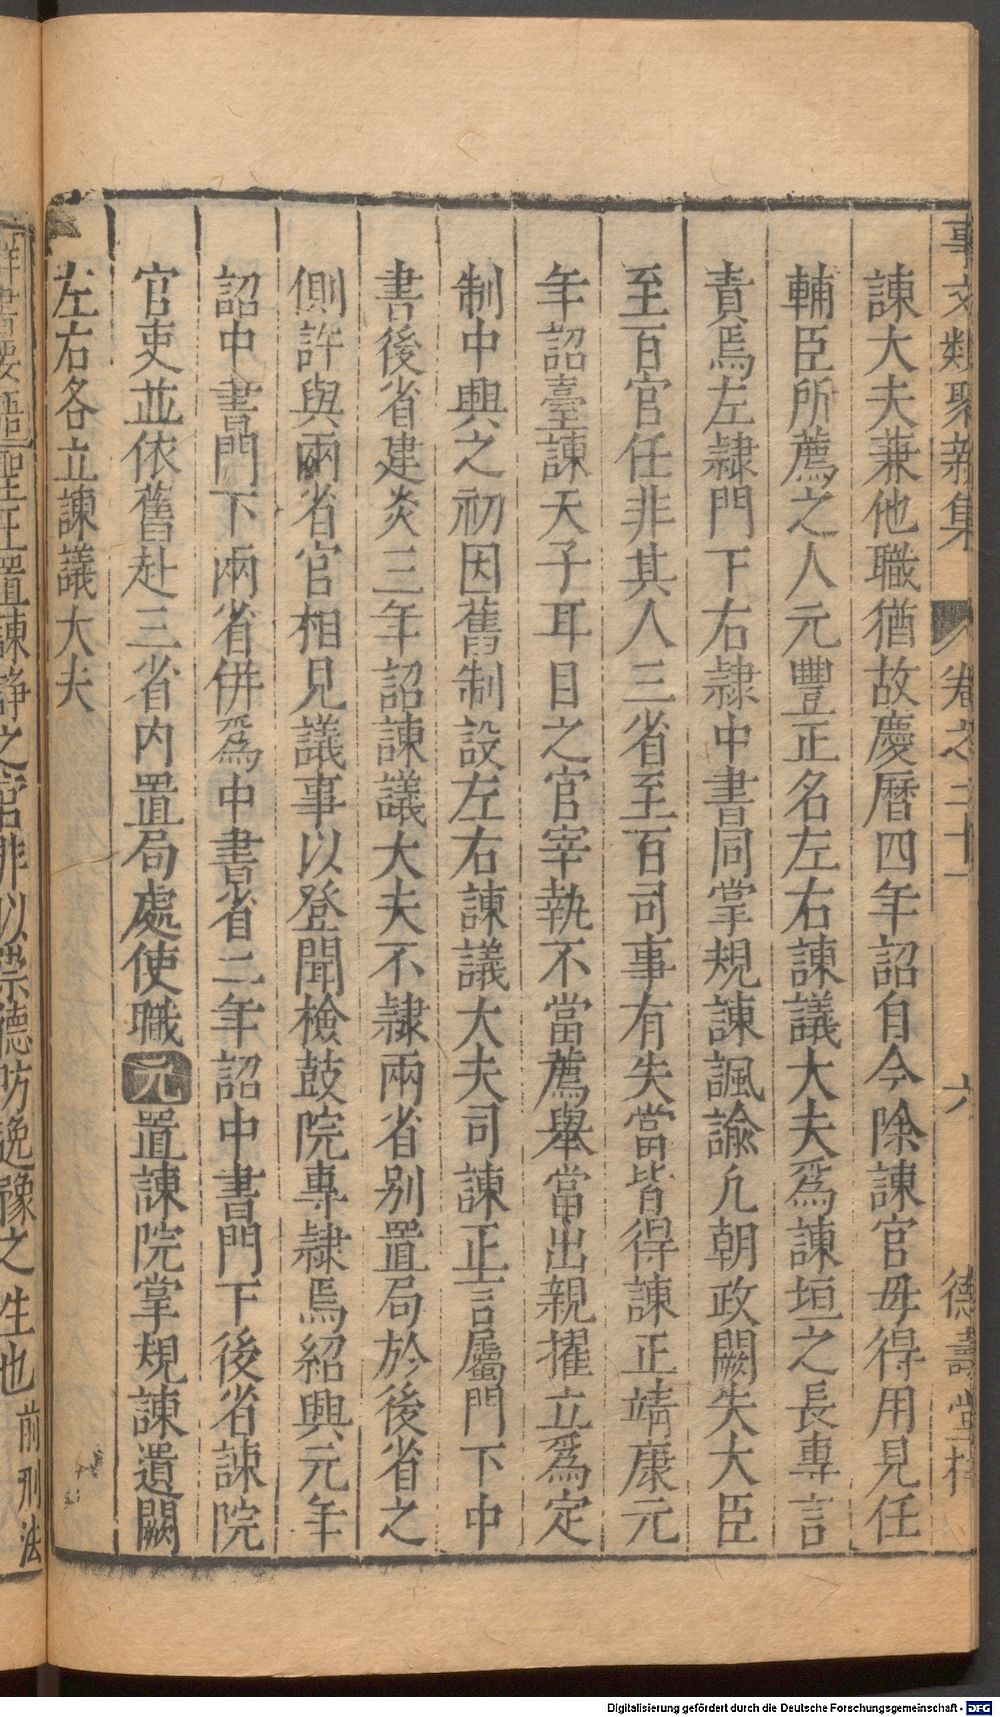 事文類聚新集 卷之二十一 六 德壽堂梓
諫大夫兼他職猶故慶曆四年詔自今除諫官毋得用見任
輔臣所薦之人元豐正名左右諫議大夫爲諫垣之長專言
責焉左隷門下右隷中書同掌規諫諷諭凢朝政闕失大臣
至百官任非其人三省至百司事有失當皆得諫正靖康元
年詔臺諫天子耳目之官宰執不當薦舉當出親擢立爲定
制中興之初因舊制設左右諫議大夫司諫正言屬門下中
書後省建炎三年詔諫議大夫不隷兩省别置局於後省之
側許與兩省官相見議事以登聞檢鼓院專隷焉紹興元年
詔中書門下兩省併爲中書省二年詔中書門下後省諫院
官吏並依舊赴三省内置局處使職元置諫院掌規諫遺闕
左右各立諫議大夫
群書要語聖王置諫諍之官非以崇德防逸豫之生也前刑法
Digitalisierung gefördert durch die Deutsche Forschungsgemeinschaft - DFG